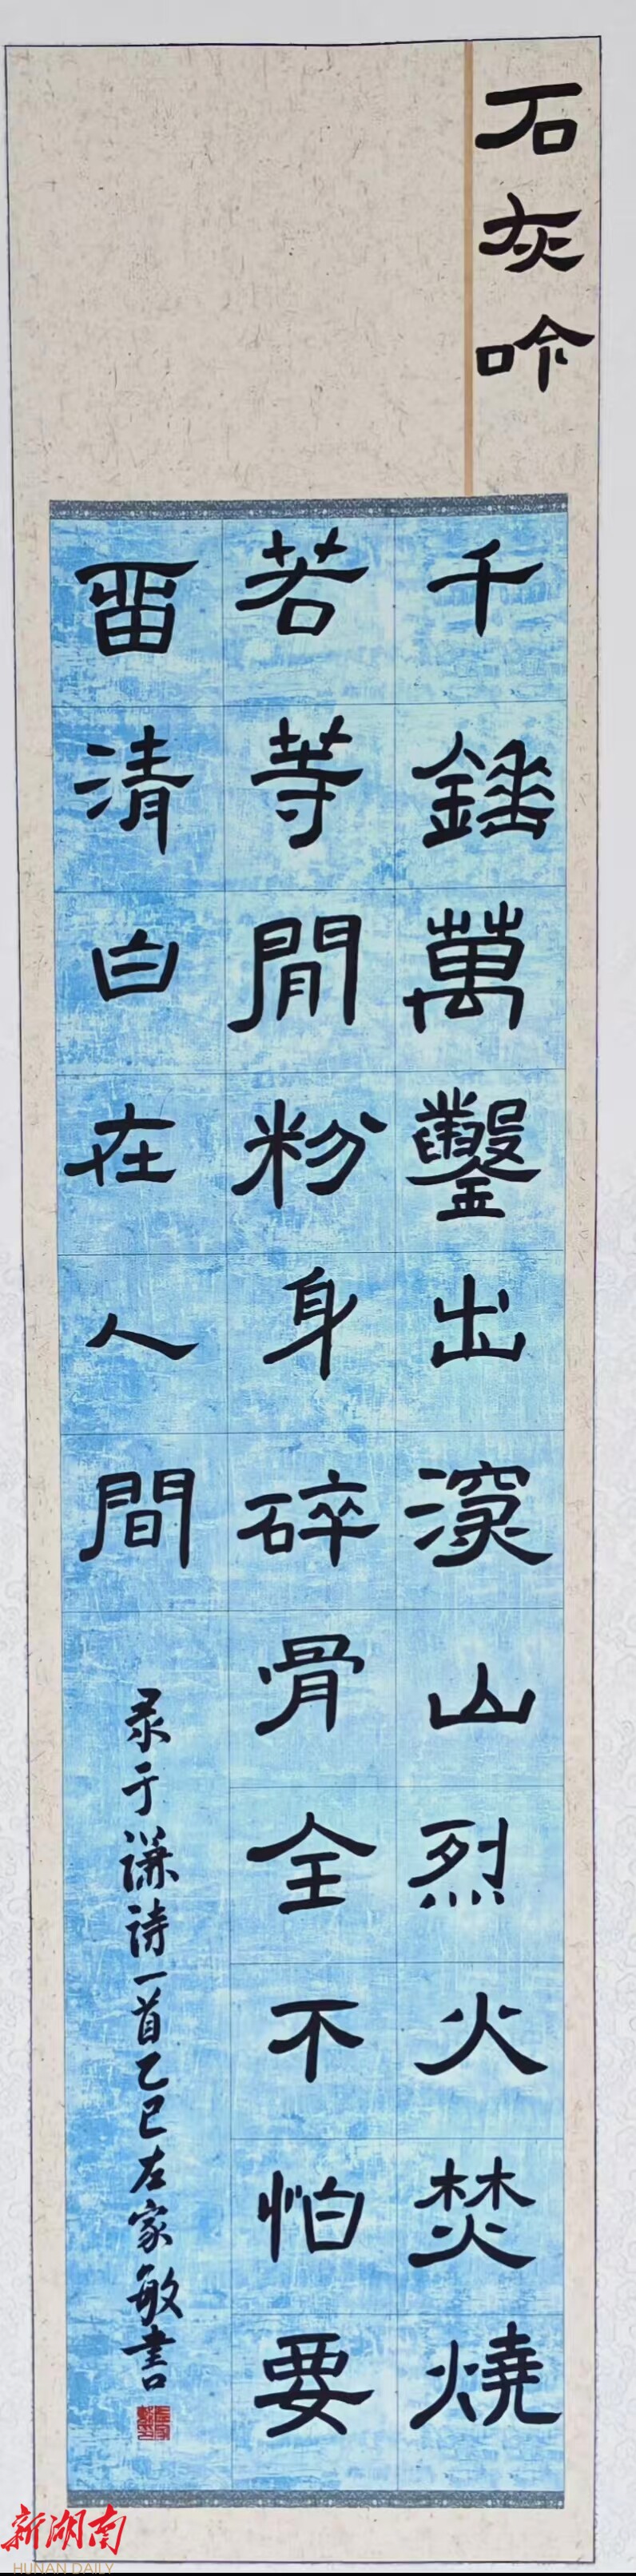 石灰吟
千錘萬鑿出深山烈火焚燒
若等閒粉身碎骨全不怕要
畱清白在人間
录于谦诗一首乙巳左家敏書
新湖南
HUNAN DAILY